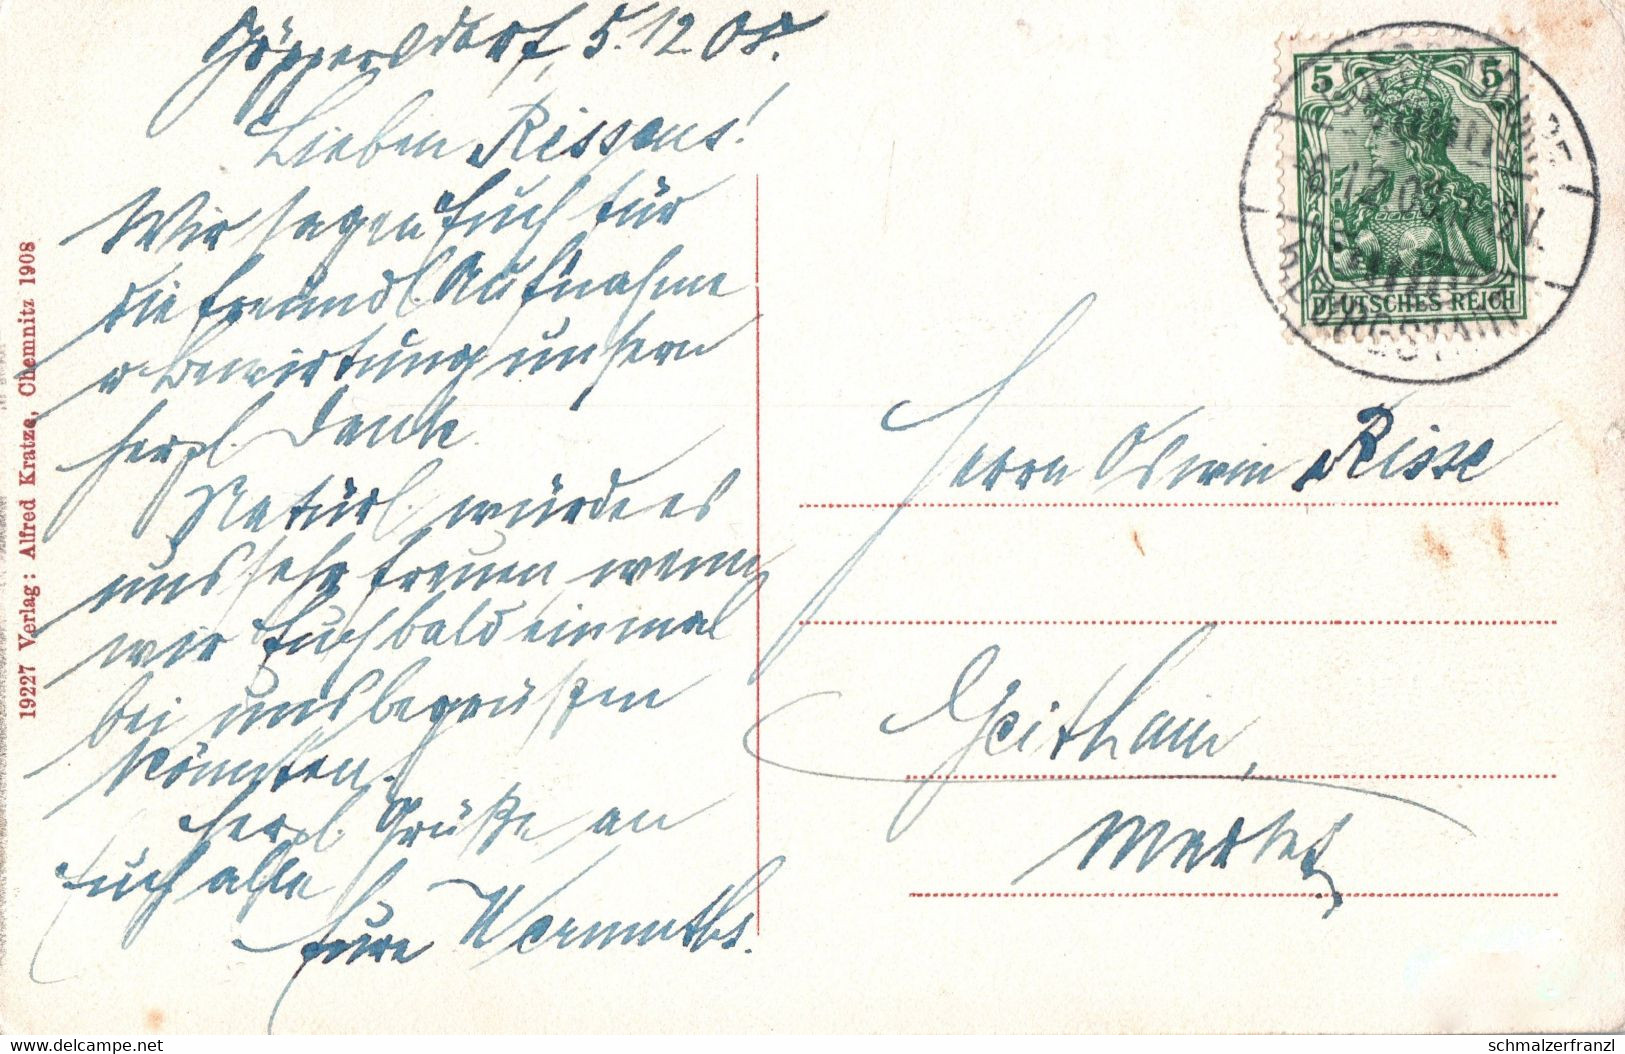 Göppersdorf, 5.12.08.
Lieben Rissens!
Wir sagen Euch für
die freundl. Aufnahme
u. Bewirtung unsern
herzl. Dank.
Natürl. würde es
uns sehr freuen wenn
wir Euch bald einmal
bei uns begrüßen
könnten.
Herzl. Grüße an
Euch alle
Eure Wermuths.
Herrn Oswin Risse
Geithain,
Markt
5 5
DEUTSCHES REICH
19227 Verlag: Alfred Kratze, Chemnitz 1908
www.delcampe.net
schmalzerfranzl